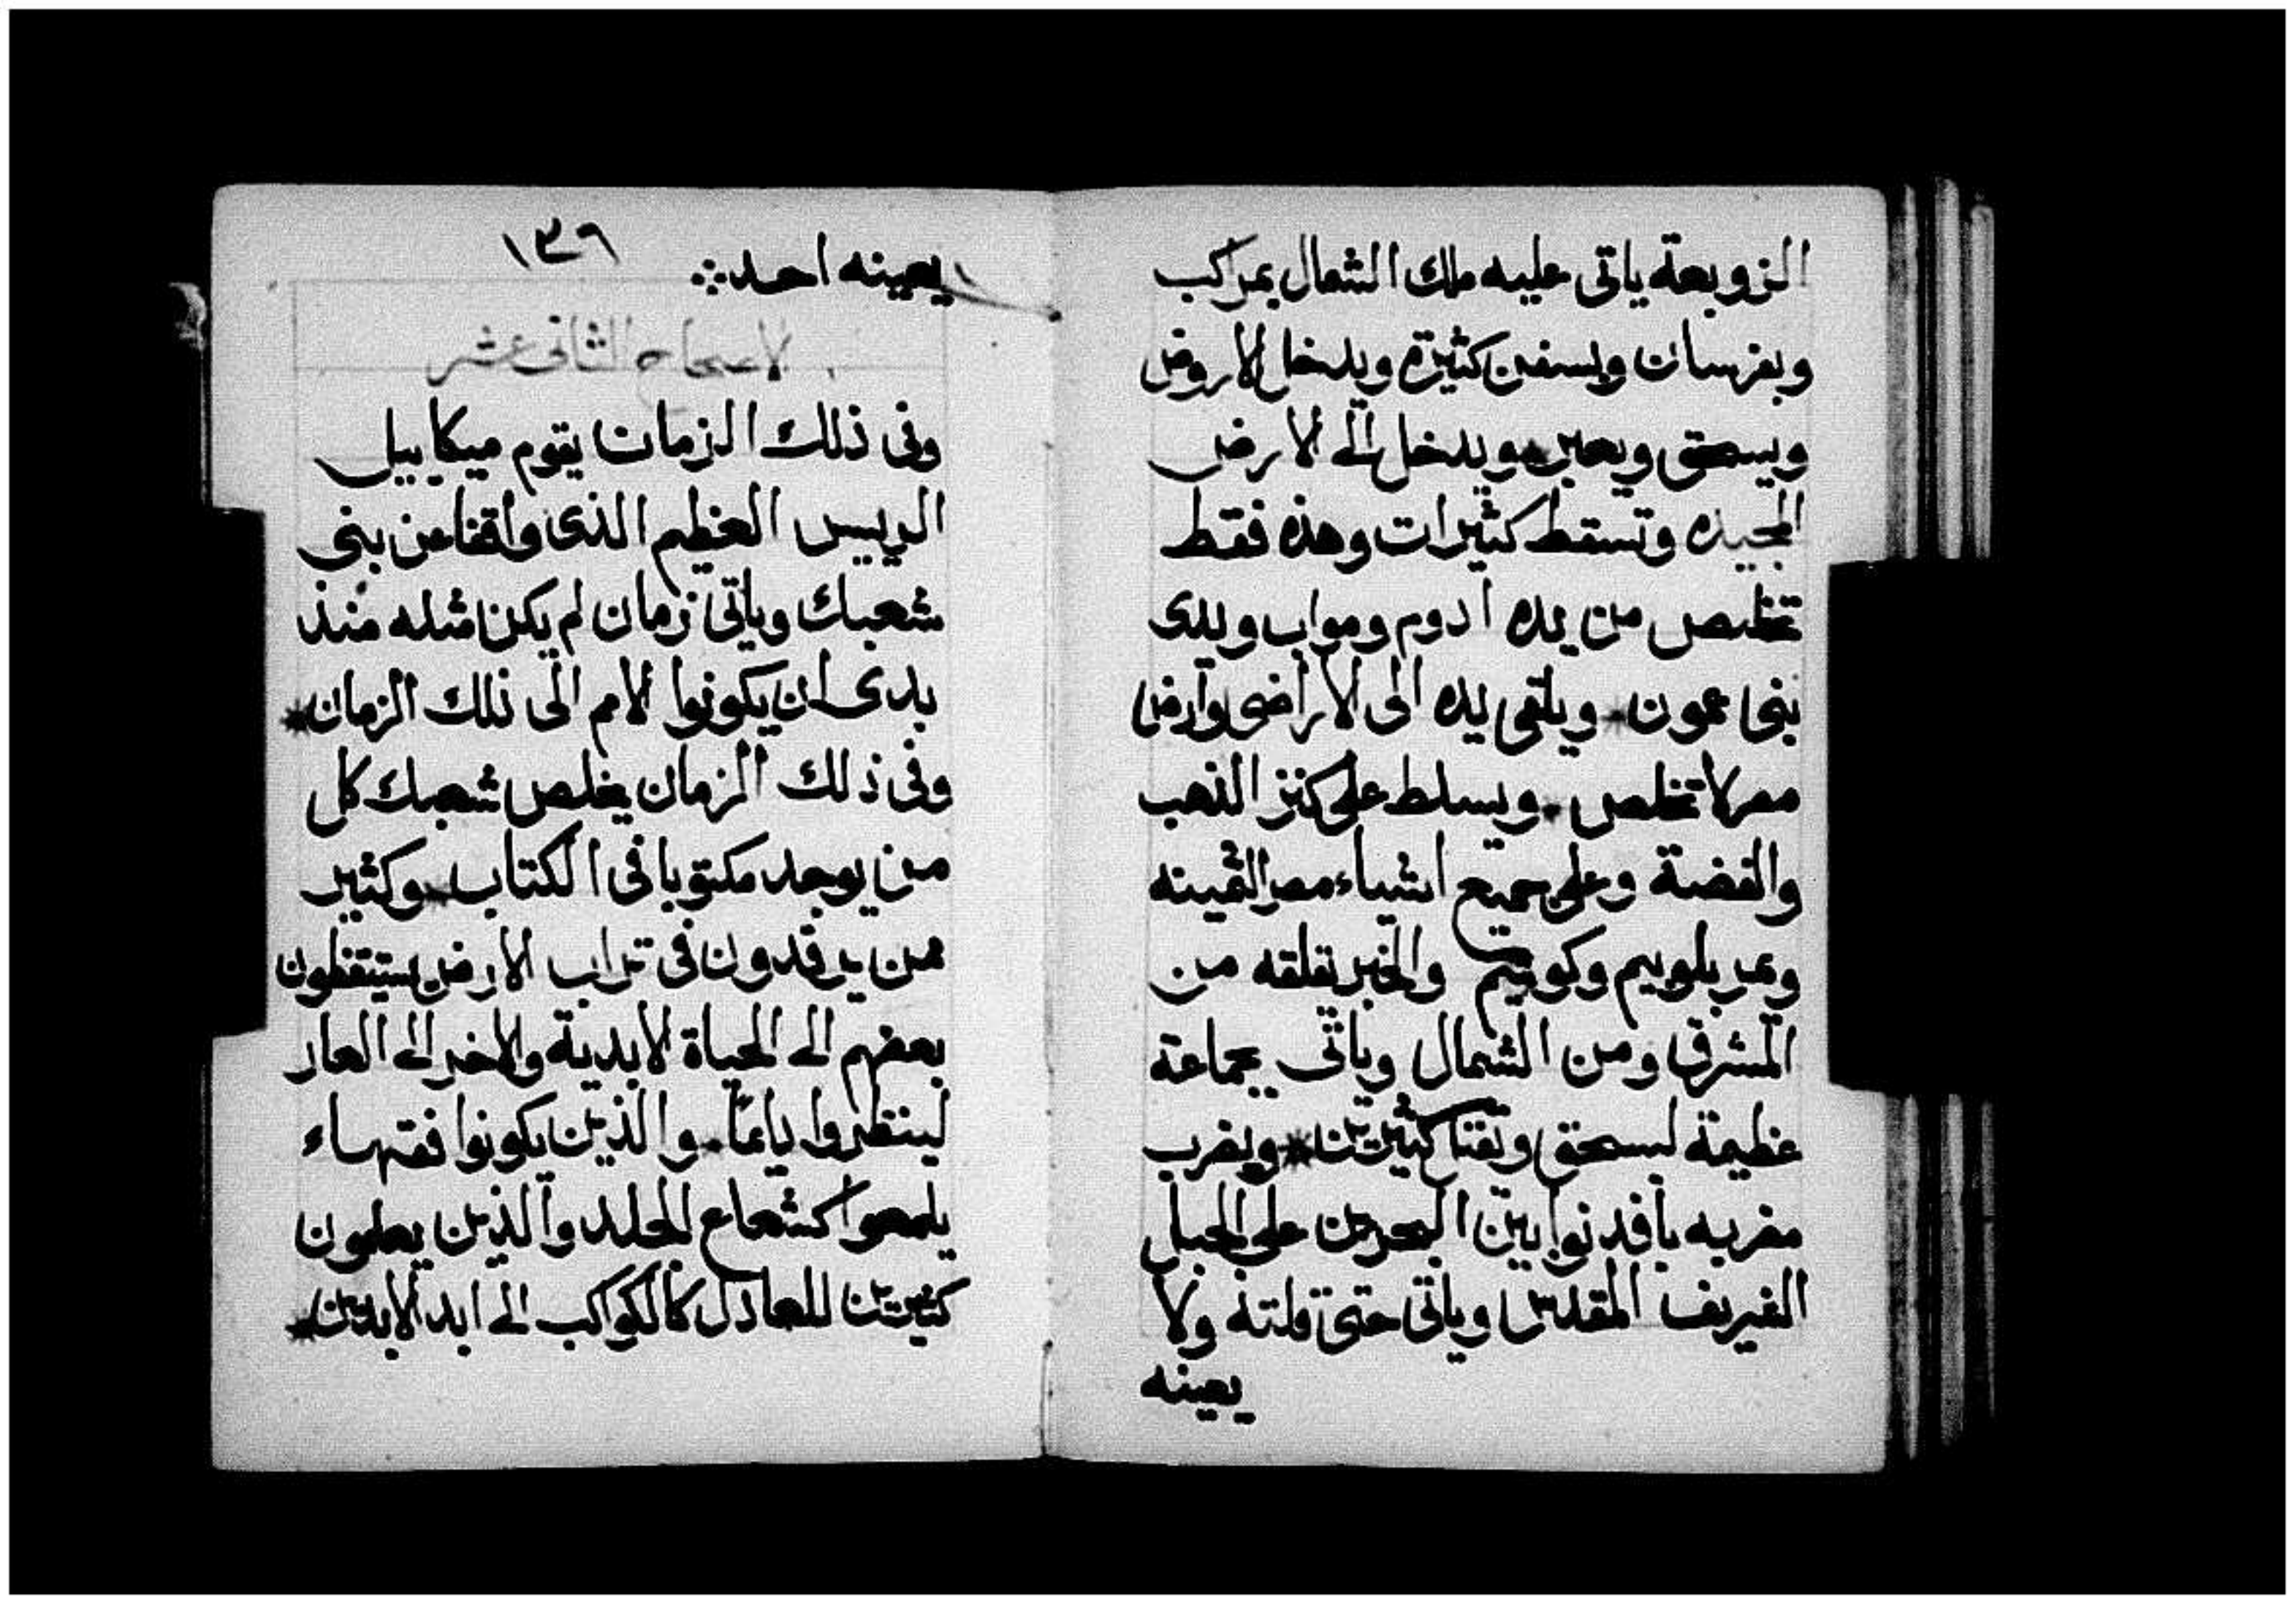 الزوبعة ياتى عليه ملك الشمال بمراكب
وبفرسان وبسفن كثيرة ويدخل الاروض
ويسحق ويعبر ويدخل الى الارض
المجيده وتسقط كثيرات وهذه فقط
تخلص من يده ادوم ومواب وبدى
بنى عمون * ويلقى يده الى الاراضى وارض
مصر لا تخلص * ويسلط على كنز الذهب
والفضة وعلى جميع اشياء مصر الثمينه
وعبر بلوبيم وكوشيم والخبر نقلقه من
المشرق ومن الشمال وياتى بجماعة
عظيمة ليسحق وبقتل كثيرين * ويضرب
مضربه بافدنوا بين البحرين على الجبل
الشريف المقدس وياتى حتى قلته ولا
يعينه
١٣٦
يعينه احد
الاصحاح الثانى عشر
وفى ذلك الزمان يقوم ميكاييل
الرييس العظيم الذى واقفا عن بنى
شعبك وياتى زمان لم يكن مثله منذ
بدى ان يكونوا الامم الى ذلك الزمان *
وفى ذلك الزمان يخلص شعبك كل
من يوجد مكتوبا فى الكتاب * وكثير
ممن يرقدون فى تراب الارض يستيقظون
بعضهم الى الحياة الابدية والاخر الى العار
لينظروا دايما * والذين يكونوا فقهاء
يلمعوا كشعاع الجلد والذين يعلمون
كثيرين للعادل كالكواكب الى ابد الابدين *